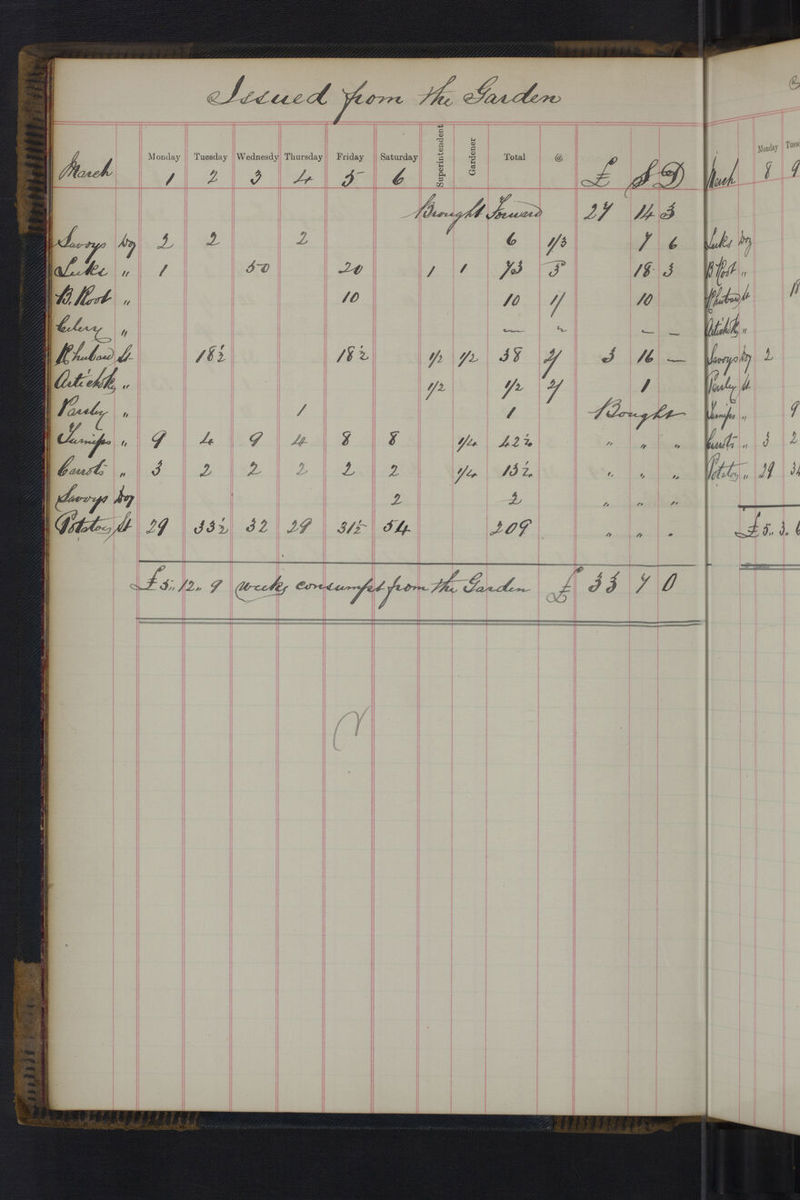 Issued from the Garden
Monday Tuesday Wednesdy Thursday Friday Saturday Superintendent Gardener Total @
March 1 2 3 4 5 6 £ S D
Brought Forward 27 14 3
Savoys Doz 2 2 2 6 1/3 7 6
Leeks " 1 50 20 1 1 73 3 18 3
B. Root " 10 10 1/ 10
Celery " — " — —
Rhubard St 18½ 18½ 1/2 1/2 38 2/ 3 16 —
Artichk " 1/2 1/2 2/ 1
Parsley " 1 1 Bought
Turnips " 9 4 9 4 8 8 1/4 42¼ " " "
Carrots " 3 2 2 2 2 2 1/4 13¼ " " "
Savoys Doz 2 2 " " "
Potatoes St 29 33½ 32 29 31½ 54 209 " " "
£5,,12,,9 Weeks consumpt from the Garden £ 33 7 0
Monday
March 8 9
Leeks Doz
B Root "
Rhubarb St
Artichk "
Savoys Doz 2
Parsley St
Turnips " 9
Carrots " 3 2
Potatoes " 29
£5,,3,,6